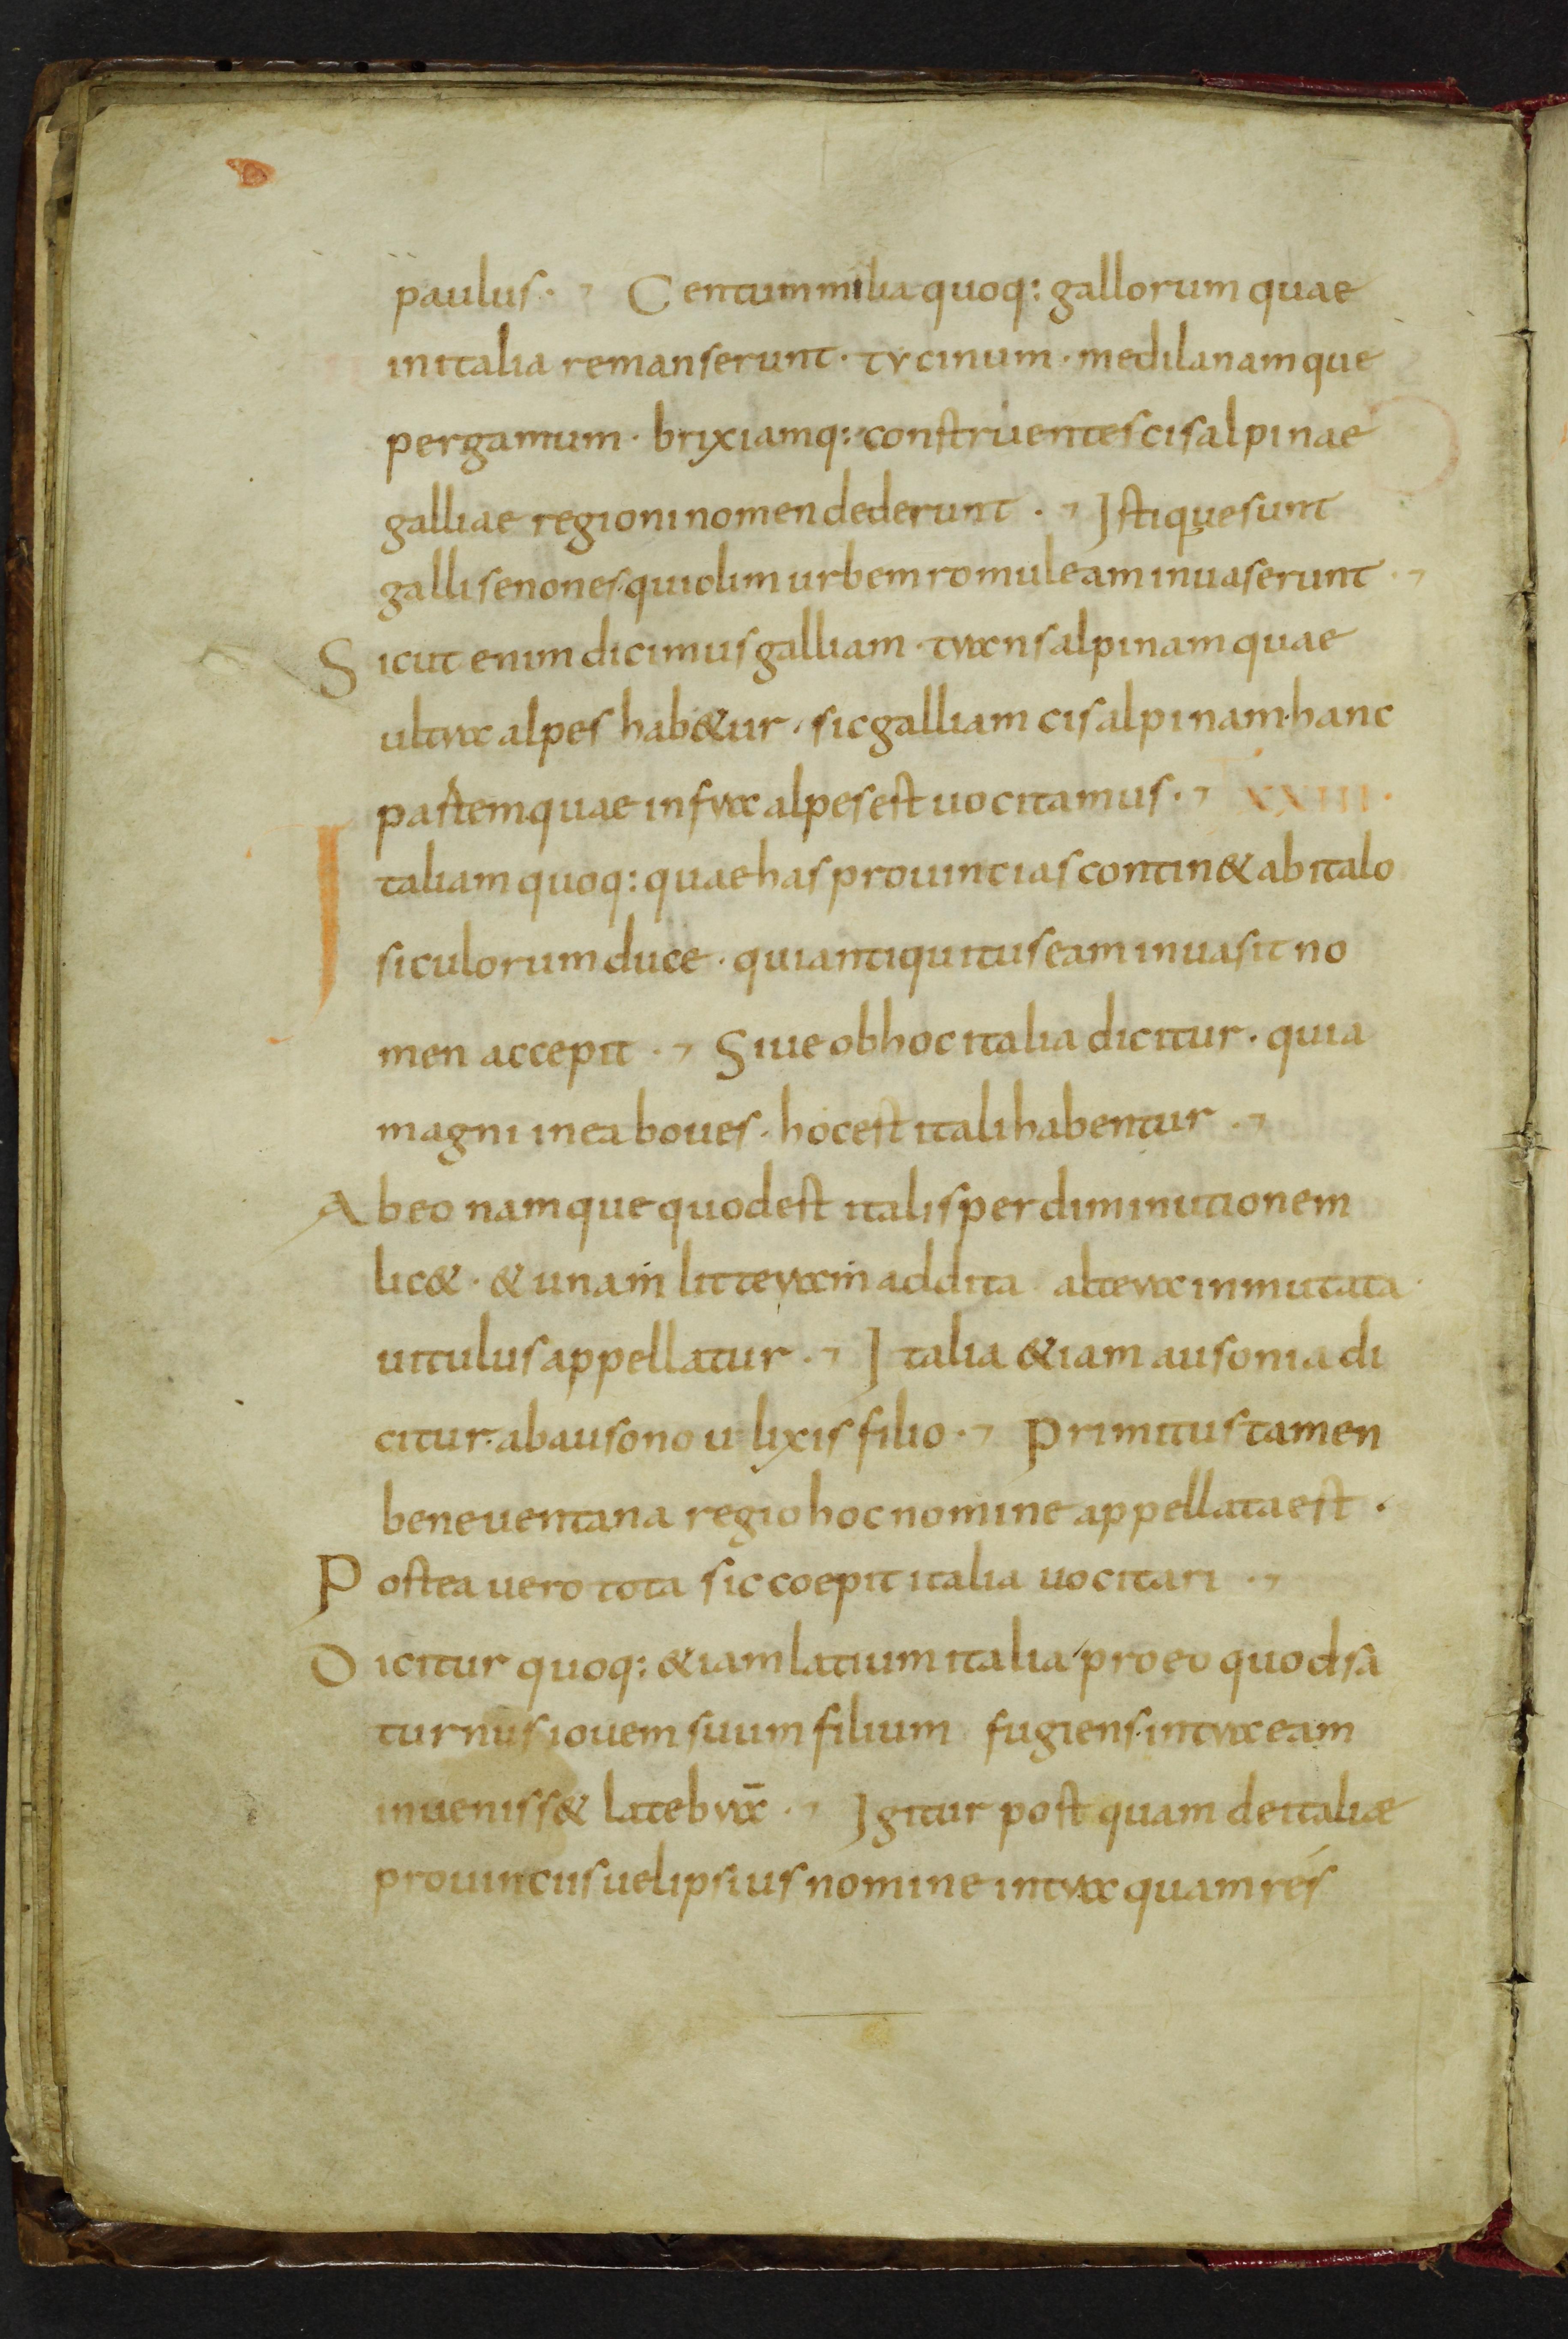 paulus · Centum milia quoq: gallorum quae
in italia remanserunt · tycinum · medilanamque
pergamum · brixiamq: construentes cisalpinae
galliae regioni nomen dederunt · Istique sunt
galli senones · qui olim urbem romuleam inuaserunt ·
Sicut enim dicimus galliam · transalpinam quae
ultra alpes hab&ur · sic galliam cisalpinam · hanc
partem quae infra alpes est uocitamus · XXIIII ·
Italiam quoq: quae has prouincias contin& ab italo
siculorum duce · qui antiquitus eam inuasit no
men accepit · Siue ob hoc italia dicitur · quia
magni in ea boues · hoc est itali habentur ·
Ab eo namque quod est italis per diminutionem
lic& · & unam litteram addita altera inmutata ·
uitulus appellatur · Italia &iam ausonia di
citur · ab ausono ulixis filio · Primitus tamen
beneuentana regio hoc nomine appellata est ·
Postea uero tota sic coepit italia uocitari ·
Dicitur quoq: &iam latium italia pro eo quod sa
turnus iouem suum filium fugiens · intra eam
inueniss& latebrā · Igitur postquam de italiæ
prouinciis uel ipsius nomine intra quam rés